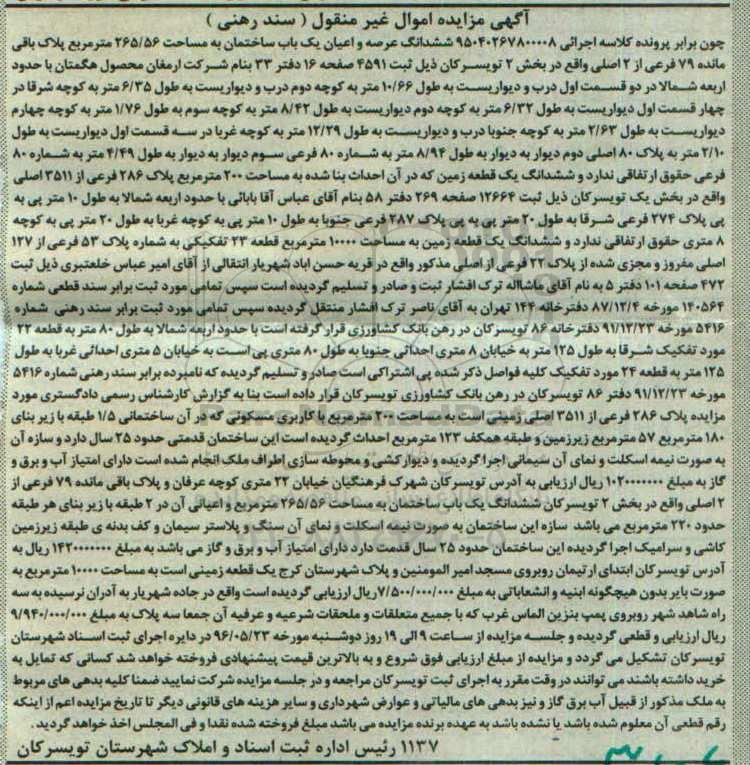 آگهی مزایده اموال غیر منقول ( سند رهنی )
چون برابر پرونده کلاسه اجرائی ۹۵۰۴۰۲۶۷۸۰۰۰۰۸ ششدانگ عرصه و اعیان یک باب ساختمان به مساحت ۲۶۵/۵۶ مترمربع پلاک باقی
مانده ۷۹ فرعی از ۲ اصلی واقع در بخش ۲ تویسرکان ذیل ثبت ۴۵۹۱ صفحه ۱۶ دفتر ۳۳ بنام شرکت ارمغان محصول هگمتان با حدود
اربعه شمالا در دو قسمت اول درب و دیواریست به طول ۱۰/۶۶ متر به کوچه دوم درب و دیواریست به طول ۶/۳۵ متر به کوچه شرقا در
چهار قسمت اول دیواریست به طول ۶/۳۲ متر به کوچه دوم دیواریست به طول ۸/۴۲ متر به کوچه سوم به طول ۱/۷۶ متر به کوچه چهارم
دیواریست به طول ۲/۶۳ متر به کوچه جنوبا درب و دیواریست به طول ۱۲/۲۹ متر به کوچه غربا در سه قسمت اول دیواریست به طول
۲/۱۰ متر به پلاک ۸۰ اصلی دوم دیوار به دیوار به طول ۸/۹۴ متر به شماره ۸۰ فرعی سوم دیوار به دیوار به طول ۴/۴۹ متر به شماره ۸۰
فرعی حقوق ارتفاقی ندارد و ششدانگ یک قطعه زمین که در آن احداث بنا شده به مساحت ۲۰۰ مترمربع پلاک ۲۸۶ فرعی از ۳۵۱۱ اصلی
واقع در بخش یک تویسرکان ذیل ثبت ۱۲۶۶۴ صفحه ۲۶۹ دفتر ۵۸ بنام آقای عباس آقا بابائی با حدود اربعه شمالا به طول ۱۰ متر پی به
پی پلاک ۲۷۴ فرعی شرقا به طول ۲۰ متر پی به پی پلاک ۲۸۷ فرعی جنوبا به طول ۱۰ متر پی به کوچه غربا به طول ۲۰ متر پی به کوچه
۸ متری حقوق ارتفاقی ندارد و ششدانگ یک قطعه زمین به مساحت ۱۰۰۰۰ مترمربع قطعه ۲۳ تفکیکی به شماره پلاک ۵۳ فرعی از ۱۲۷
اصلی مفروز و مجزی شده از پلاک ۲۲ فرعی از اصلی مذکور واقع در قریه حسن اباد شهریار انتقالی از آقای امیر عباس خلعتبری ذیل ثبت
۴۷۲ صفحه ۱۰۱ دفتر ۵ به نام آقای ماشااله ترک افشار ثبت و صادر و تسلیم گردیده است سپس تمامی مورد ثبت برابر سند قطعی شماره
۱۴۰۵۶۴ مورخه ۸۷/۱۲/۴ دفترخانه ۱۴۴ تهران به آقای ناصر ترک افشار منتقل گردیده سپس تمامی مورد ثبت برابر سند رهنی شماره
۵۴۱۶ مورخه ۹۱/۱۲/۲۳ دفترخانه ۸۶ تویسرکان در رهن بانک کشاورزی قرار گرفته است با حدود اربعه شمالا به طول ۸۰ متر به قطعه ۲۲
مورد تفکیک شرقا به طول ۱۲۵ متر به خیابان ۸ متری احداثی جنوبا به طول ۸۰ متری پی است به خیابان ۵ متری احداثی غربا به طول
۱۲۵ متر به قطعه ۲۴ مورد تفکیک کلیه فواصل ذکر شده پی اشتراکی است صادر و تسلیم گردیده که نامبرده برابر سند رهنی شماره ۵۴۱۶
مورخه ۹۱/۱۲/۲۳ دفتر ۸۶ تویسرکان در رهن بانک کشاورزی تویسرکان قرار داده است بنا به گزارش کارشناس رسمی دادگستری مورد
مزایده پلاک ۲۸۶ فرعی از ۳۵۱۱ اصلی زمینی است به مساحت ۲۰۰ مترمربع با کاربری مسکونی که در آن ساختمانی ۱/۵ طبقه با زیر بنای
۱۸۰ مترمربع ۵۷ مترمربع زیرزمین و طبقه همکف ۱۲۳ مترمربع احداث گردیده است این ساختمان قدمتی حدود ۲۵ سال دارد و سازه آن
به صورت نیمه اسکلت و نمای آن سیمانی اجرا گردیده و دیوارکشی و محوطه سازی اطراف ملک انجام شده است دارای امتیاز آب و برق و
گاز به مبلغ ۱۰۲۰۰۰۰۰۰۰ ریال ارزیابی به آدرس تویسرکان شهرک فرهنگیان خیابان ۲۲ متری کوچه عرفان و پلاک باقی مانده ۷۹ فرعی از
۲ اصلی واقع در بخش ۲ تویسرکان ششدانگ یک باب ساختمان به مساحت ۲۶۵/۵۶ مترمربع و اعیانی آن در ۲ طبقه با زیر بنای هر طبقه
حدود ۲۲۰ مترمربع می باشد سازه این ساختمان به صورت نیمه اسکلت و نمای آن سنگ و پلاستر سیمان و کف بدنه ی طبقه زیرزمین
کاشی و سرامیک اجرا گردیده این ساختمان حدود ۲۵ سال قدمت دارد دارای امتیاز آب و برق و گاز می باشد به مبلغ ۱۴۲۰۰۰۰۰۰۰ ریال به
آدرس تویسرکان ابتدای ارتیمان روبروی مسجد امیر المومنین و پلاک شهرستان کرج یک قطعه زمینی است به مساحت ۱۰۰۰۰ مترمربع به
صورت بایر بدون هیچگونه ابنیه و انشعاباتی به مبلغ ۷/۵۰۰/۰۰۰/۰۰۰ ریال ارزیابی گردیده است واقع در جاده شهریار به آدران نرسیده به سه
راه شاهد شهر روبروی پمپ بنزین الماس غرب که با جمیع متعلقات و ملحقات شرعیه و عرفیه آن جمعا سه پلاک به مبلغ ۹/۹۴۰/۰۰۰/۰۰۰
ریال ارزیابی و قطعی گردیده و جلسه مزایده از ساعت ۹ الی ۱۹ روز دوشنبه مورخه ۹۶/۰۵/۲۳ در دایره اجرای ثبت اسناد شهرستان
تویسرکان تشکیل می گردد و مزایده از مبلغ ارزیابی فوق شروع و به بالاترین قیمت پیشنهادی فروخته خواهد شد کسانی که تمایل به
خرید داشته باشند می توانند در وقت مقرر به اجرای ثبت تویسرکان مراجعه و در جلسه مزایده شرکت نمایید ضمنا کلیه بدهی های مربوط
به ملک مذکور از قبیل آب برق گاز و نیز بدهی های مالیاتی و عوارض شهرداری و سایر هزینه های قانونی دیگر تا تاریخ مزایده اعم از اینکه
رقم قطعی آن معلوم شده باشد یا نشده باشد به عهده برنده مزایده می باشد مبلغ فروخته شده نقدا و فی المجلس اخذ خواهد گردید.
۱۱۳۷ رئیس اداره ثبت اسناد و املاک شهرستان تویسرکان